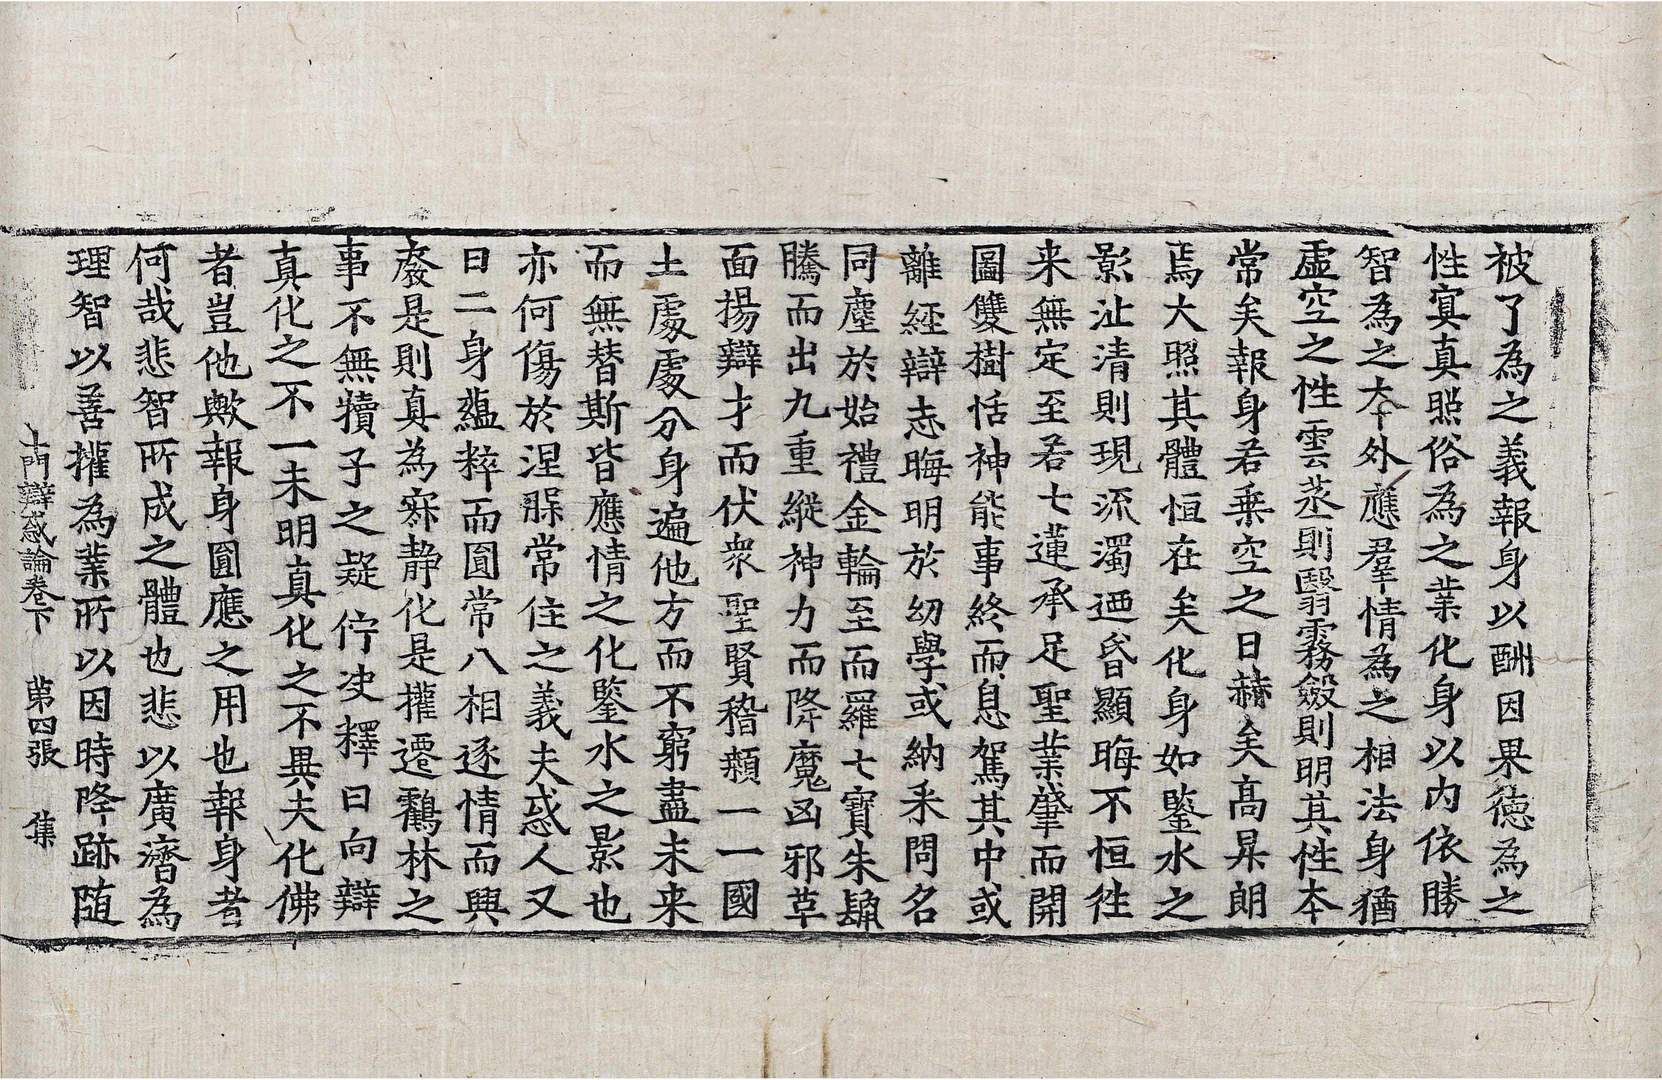 被了為之義報身以酬因果德為之
性寘真照俗為之業化身以内依勝
智為之夲外應羣情為之相法身猶
虛空之性雲蒸則翳霧斂則明其性本
常矣報身若乗空之日赫矣髙昇朗
焉大照其體恒在矣化身如鑒水之
影沚清則現流濁迺昏顯晦不恒徃
来無定至若七蓮承足聖業肇而開
圖雙樹恬神能事終而息駕其中或
離經辯志晦明於幼學或納釆問名
同塵於始禮金輪至而羅七寳朱鬛
騰而出九重縱神力而降魔凶邪草
面揚辯才而伏衆聖賢稽顙一一國
土處處分身遍他方而不窮盡未来
而無替斯皆應情之化鑒水之影也
亦何傷於涅槃常住之義夫惑人又
曰二身藴粹而圓常八相逐情而興
廢是則真為寂静化是權遷鸖林之
事不無犢子之疑佇决釋曰向辯
真化之不一未明真化之不異夫化佛
者豈他歟報身圓應之用也報身者
何哉悲智所成之體也悲以廣濟為
理智以善權為業所以因時降跡随
十門辯惑論卷下　第四張　集